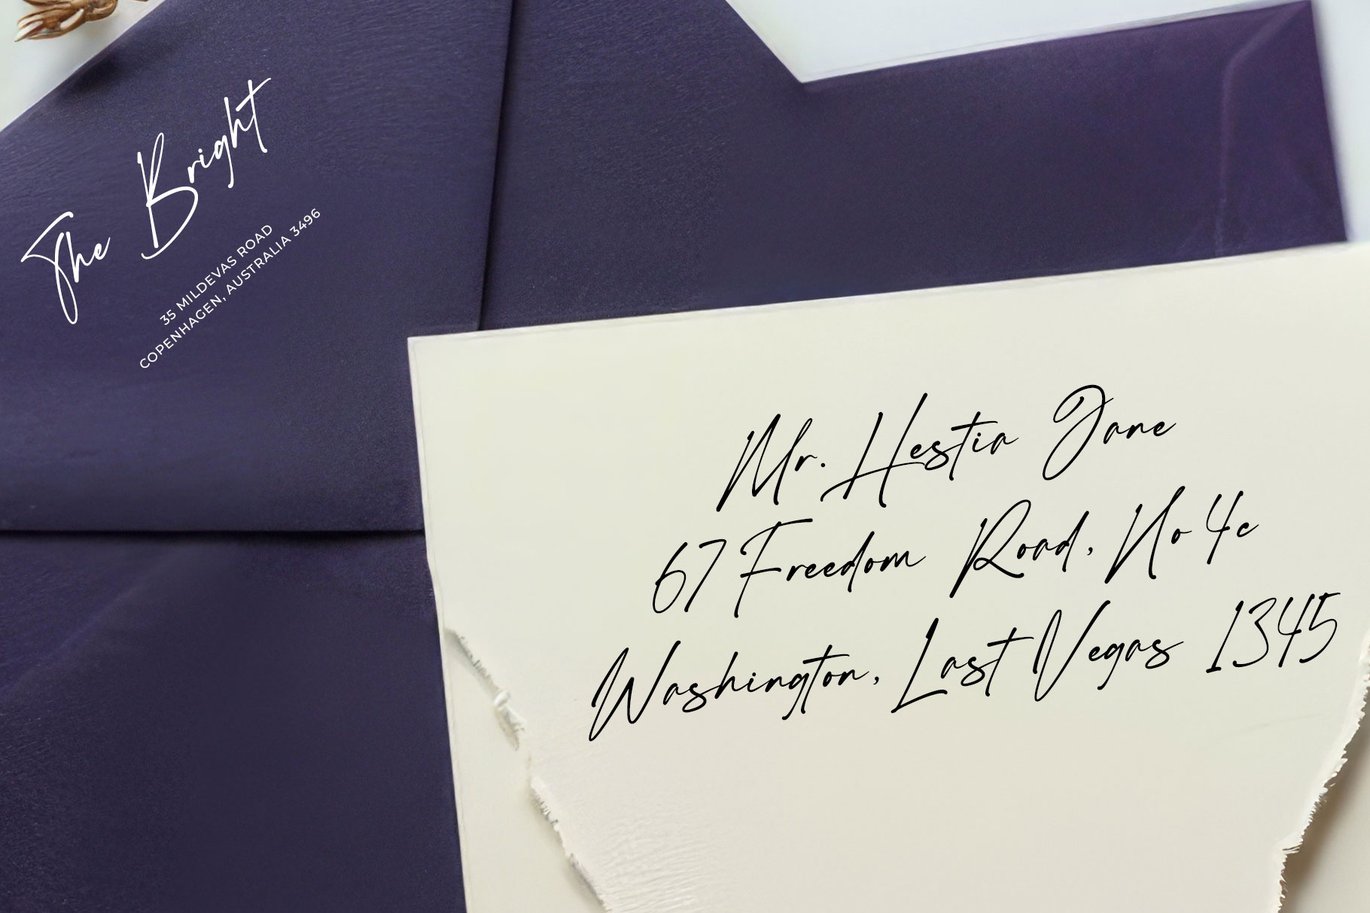 The Bright
35 MILDEVAS ROAD
COPENHAGEN, AUSTRALIA 3496
Mr. Hestia Jane
67 Freedom Road, No 4c
Washington, Last Vegas 1345